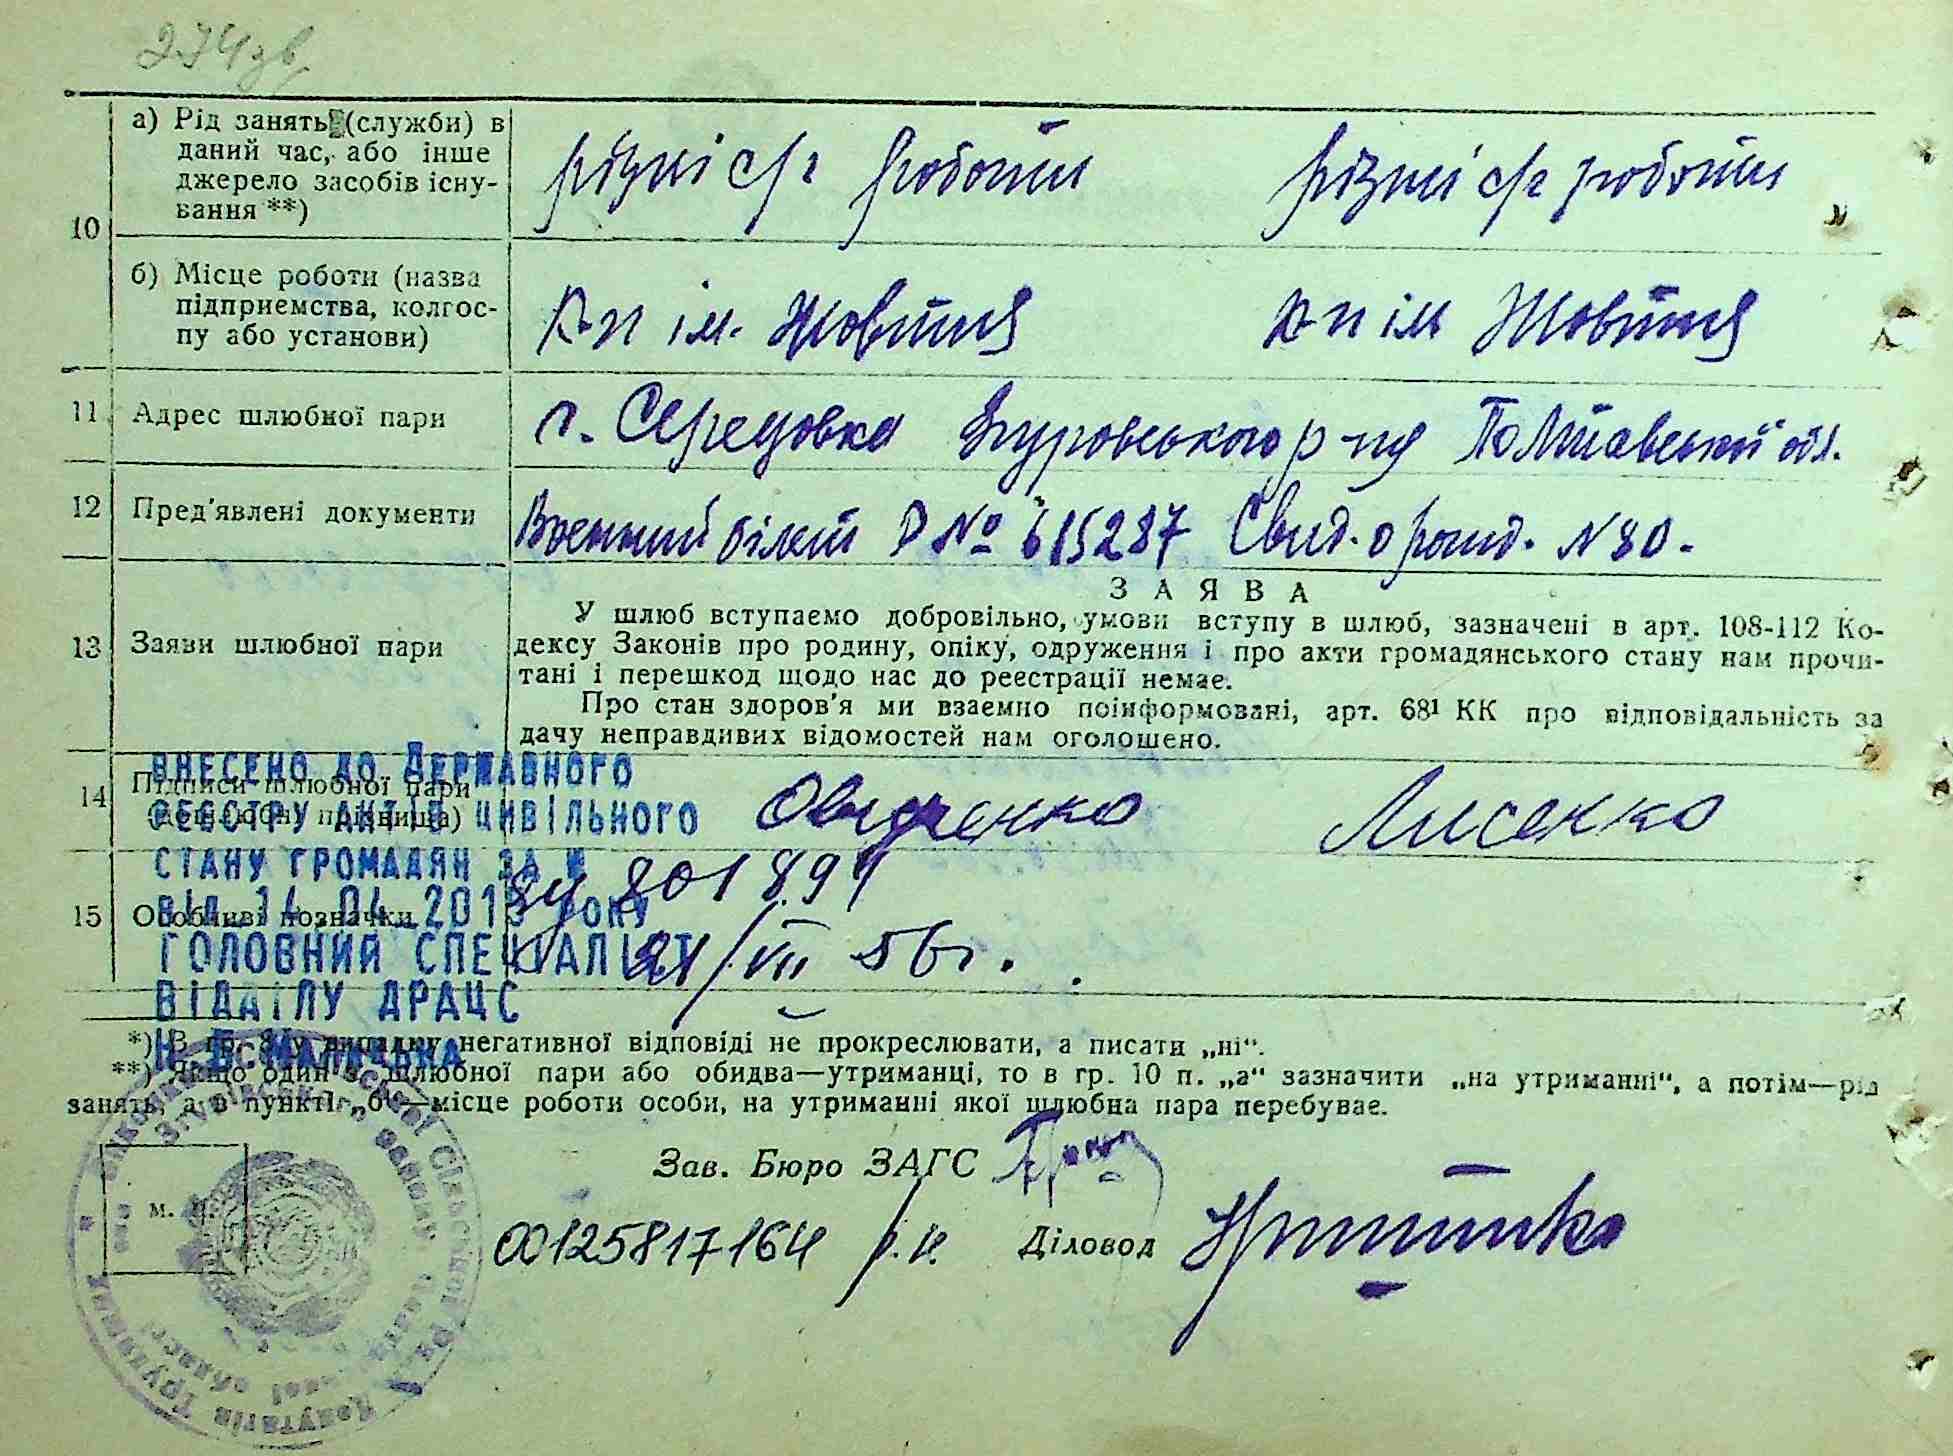 274зв
а) Рід занять (служби) в
даний час, або інше
джерело засобів існу-
вання **)
різні с/г роботи різні с/г роботи
10
б) Місце роботи (назва
підприємства, колгос-
пу або установи)
к-п ім. Жовтня к-п ім Жовтня
11 Адрес шлюбної пари с. Середовка Згуровського р-ну Полтавської обл.
12 Пред'явлені документи Военний білет № 615287 Свид. о рожд. N 80.
З А Я В А
13 Заяви шлюбної пари
У шлюб вступаємо добровільно, умови вступу в шлюб, зазначені в арт. 108-112 Ко-
дексу Законів про родину, опіку, одруження і про акти громадянського стану нам прочи-
тані і перешкод щодо нас до реєстрації немає.
Про стан здоров'я ми взаємно поінформовані, арт. 68¹ КК про відповідальність за
дачу неправдивих відомостей нам оголошено.
14 Підписи шлюбної пари
(дошлюбні прізвища) Овдиенко Лисенко
15 Особливі позначки 801891
21/VII 56г.
ВНЕСЕНО ДО ДЕРЖАВНОГО
РЕЄСТРУ АКТІВ ЦИВІЛЬНОГО
СТАНУ ГРОМАДЯН ЗА №
ВІД 14 04 201 РОКУ
ГОЛОВНИЙ СПЕЦІАЛІСТ
ВІДДІЛУ ДРАЦС
*) В гр. 8 у випадку негативної відповіді не прокреслювати, а писати „ні".
**) Якщо один з шлюбної пари або обидва—утриманці, то в гр. 10 п. „а" зазначити „на утриманні", а потім—рід
занять, а в пункті „б"—місце роботи особи, на утриманні якої шлюбна пара перебуває.
Зав. Бюро ЗАГС
м. п.
00125817164 Діловод